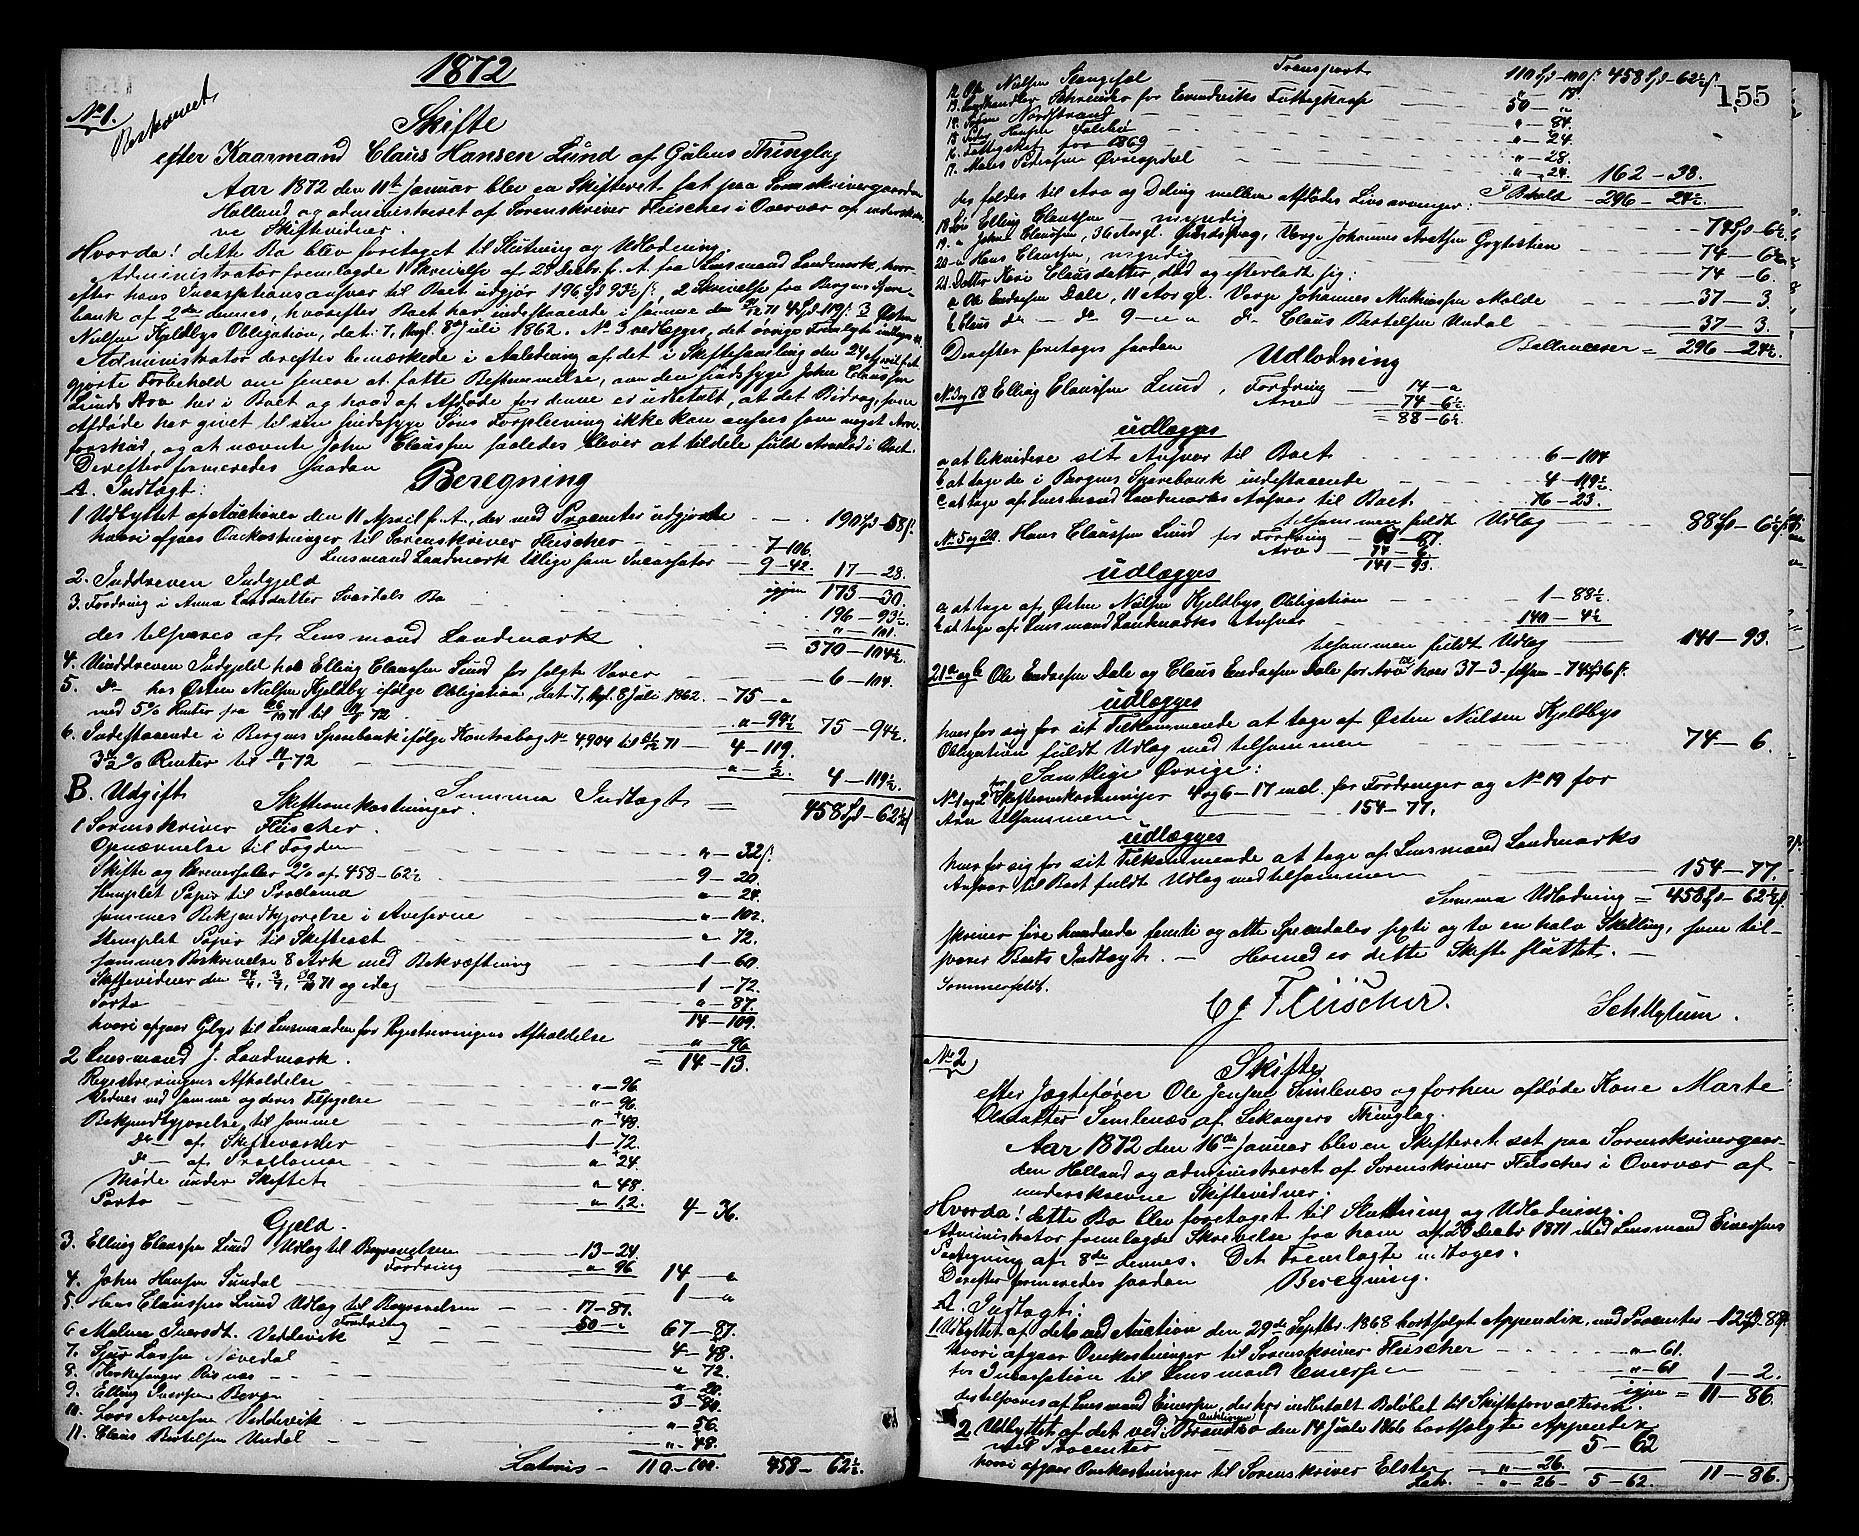 1872
No 1.
Beskrevet
Skifte
efter Kaarmand Claus Hansen Lund af Gulens Thinglag
Aar 1872 den 11te Januar blev en Skifteret sat paa Sorenskrivergaarden
Holland og administreret af Sorenskriver Fleischer i Overvær af underskrev-
ne Skiftevidner.
Hvorda! dette Bo blev foretaget til Slutning og Udlodning.
Administrator fremlagde 1 Skrivelse af 28 Decbr. f. A. fra Lensmand Landmark, hvor-
efter hans Incassationsansvar til Boet udgjør 196 Spd 93½ s, 2 Skrivelse fra Bergens Spare-
bank af 2den dennes, hvorefter Boet har indestaaende i samme den 31/12 71 4 Spd 119 s. 3 Østen
Nielsen Kjeldbys Obligation, dat. 7, tingl. 8de Juli 1862. No 3 vedlægges, det øvrige Fremlagte indtages
Administrator derefter bemærkede i Anledning af det i Skiftesamling den 24 April f. A.
gjorte Forbehold om senere at fatte Bestemmelse, om den sindssyge John Claussen
Lunds Arv her i Boet og hvad af Afdøde for denne er udbetalt, at det Bidrag, som
Afdøde har givet til sin sindssyge Søns Forpleining ikke kan ansees som noget Arve-
forskud, og at nævnte John Claussen saaledes bliver at tildele fuld Arvelod i Boet.
Derefter formeredes saadan
Beregning
A. Indtægt:
1 Udbyttet af Auctionen den 11 April f. A., der med Procenter udgjorde 190 Spd - 58 s.
hvori afgaar Omkostninger til Sorenskriver Fleischer 7-106.
Lensmand Landmark tillige som Incassator 9-42. 17-28.
igjen 173-30.
2. Inddreven Indgjeld 196-93½.
3. Fordring i Anna Larsdatter Svardals Bo " 101.
der tilsvares af Lensmand Landmark = 370-104½
4. Uinddreven Indgjeld hos Elling Claussen Lund for solgte Varer 6-104.
5. do hos Østen Nielsen Kjeldby ifølge Obligation, dat. 7, tgl. 8 Juli 1862. 75-"
med 5% Renter fra 16/10 71 til 11/1 72 "-94½ 75-94½
6. Indestaaende i Bergens Sparebank ifølge Kontrabog No 4904 til 31/12 71 4-119.
3½ % Renter til 11/1 72 "-½. 4-119½.
Summa Indtægt = 458 Spd - 62½ s
B. Udgift
Skifteomkostninger.
1 Sorenskriver Fleischer.
Opnævnelse til Fogden "-32 s.
Skifte og Skriversalær 2% af 458-62½ 9-20
Stemplet Papir til Proclama "-24.
sammes Bekjendtgjørelse i Aviserne "-102.
Stemplet Papir til Skifteact "-72.
sammes Beskrivelse 8 Ark med Bekræftning 1-60.
Skiftevidner den 24/4, 3/7, 30/10 71 og idag 1-72.
Porto "-87.
14-109.
hvori afgaar Gebyr til Lensmanden for Registreringens Afholdelse "-96
= 14-13.
2 Lensmand J. Landmark.
Registreringens Afholdelse "-96.
Vidner ved samme og deres Tilsigelse "-96.
Bekjendtgjørelse til samme "-48.
do- af Skiftevarsler 1-72.
do- af Proclama "-24.
Møde under Skiftet "-48.
Porto "-12. 4-36.
Gjeld.
3. Elling Claussen Lund Udlæg til Begravelsen 13-24.
Fordring "-96 14-"
4. John Hansen Sundal 1-"
5. Hans Claussen Lund Udlæg til Begravelsen 17-87.
Fordring 50-" 67-87.
6 Malene Iversdt. Veddevik 4-48.
7. Sjur Larsen Nævedal "72.
8. Kirkesanger Risnæs
9. Elling Iversen Berge 3-90.
10. Lars Arnesen Veddevik "-56.
11. Claus Bertelsen Undal "-48.
Lateris 110-100. 458-62½.
155
Transport 110 Spd - 100 s. 458 Spd - 62½ s
12. Ole Nielsen Stangefol " 18.
13. Landhandler Schreuder for Evindviks Fattigkasse 50-"
14. Søren Nordstrand "-84.
15. Peder Hansen Falsbø "-24.
16. Fattigskat for 1869 "-28.
17. Mons Petersen Øvrespikel "-24. 162-38.
Behold 296-24½.
der falder til Arv og Deling mellem Afdødes Livsarvinger:
18. Søn Elling Claussen, myndig 74 Spd - 6½
19. " John Claussen, 36 Aar gl. sindssvag, Verge Johannes Arntsen Grytestien 74-6½
20. " Hans Claussen, myndig 74-6.
21. Datter Kari Clausdatter, død og efterladt sig:
a Ole Endresen Dale, 11 Aar gl. Verge Johannes Mathiassen Molde 37-3.
b Claus do - do 9-"-" do Claus Bertelsen Undal 37-3.
Ballancerer = 296-24½.
Derefter foretoges saadan
Udlodning
No 3 og 18 Elling Claussen Lund, Fordring 14-"
Arv 74-6½
= 88-6½
udlægges
a at likvidere sit Ansvar til Boet 6-104
b at tage de i Bergens Sparebank indestaaende 4-119½
c at tage af Lensmand Landmarks Ansvar til Boet 76-23.
tilsammen fuldt Udlæg 88 Spd - 6½ s.
No 5 og 20. Hans Claussen Lund for Fordring 67-87.
Arv 74-6.
141-93.
udlægges
a at tage af Østen Nielsen Kjeldbys Obligation 1-88½
b at tage af Lensmand Landmarks Ansvar 140-4½
tilsammen fuldt Udlæg 141-93.
21 a og b Ole Endresen Dale og Claus Endresen Dale for Arv til hver 37-3 tilsam. 74 Spd 6 s.
udlægges
hver for sig for sit Tilkommende at tage af Østen Nielsen Kjeldbys
Obligation fuldt Udlæg med tilsammen 74-6.
Samtlige Øvrige:
No 1 og 2 for Skifteomkostninger 4 og 6-17 incl. for Fordringer og No 19 for
Arv tilsammen 154-77.
udlægges
hver for sig for sit Tilkommende at tage af Lensmand Landmarks
Ansvar til Boet fuldt Udlæg med tilsammen 154-77.
Summa Udlodning = 458 Spd - 62½ s.
skriver fire hundrede femti og otte Speciedaler sexti og to en halv Skilling, som til-
svarer Boets Indtægt. - Hermed er dette Skifte sluttet. -
Sommerfeldt. Cg Fleischer. Seh Mylum.
No 2
Skifte
efter Jægtefører Ole Jensen Simlenæs og forhen afdøde Kone Marte
Olsdatter Simlenæs af Lekangers Thinglag.
Aar 1872 den 16de Januar blev en Skifteret sat paa Sorenskrivergaar-
den Holland og administreret af Sorenskriver Fleischer i Overvær af
underskrevne Skiftevidner.
Hvorda! dette Bo blev foretaget til Slutning og Udlodning.
Administrator fremlagde Skrivelse fra ham af 28 Decbr 1871 med Lensmand Einersens
Paategning af 8de dennes. Det Fremlagte indtages.
Derefter formeredes saadan
Beregning.
A. Indtægt:
1 Udbyttet af det ved Auction den 29de Septbr. 1868 bortsolgt Appendix, med Procenter 12 Spd 88 s.
hvori afgaar Omkostninger til Sorenskriver Fleischer "-61.
for Incassation til Lensmand Einersen "-61 1-2.
igjen = 11-86.
der tilsvares af Lensmand Einersen, der har indbetalt Beløbet til Skifteforvalteren.
2 Udbyttet af det ved Auktionen Brandsø den 14 Juli 1866 bortsolgte Appendix
med Procenter 5-62
hvori afgaar Omkostninger til Sorenskriver Elster "-26.
Latr. "-26 5-62. 11-86.